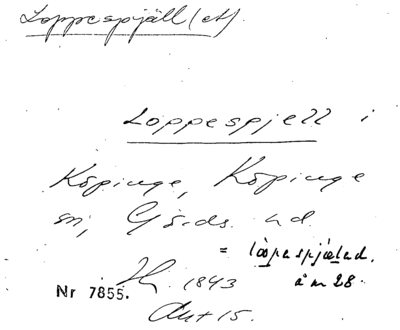 Loppespjäll (et).
Loppespjell i
Köpinge, Köpinge
sn, Gärds hd.
= lòpespjælad.
1843 å m 28.
Nr 7855.
Akt 15.